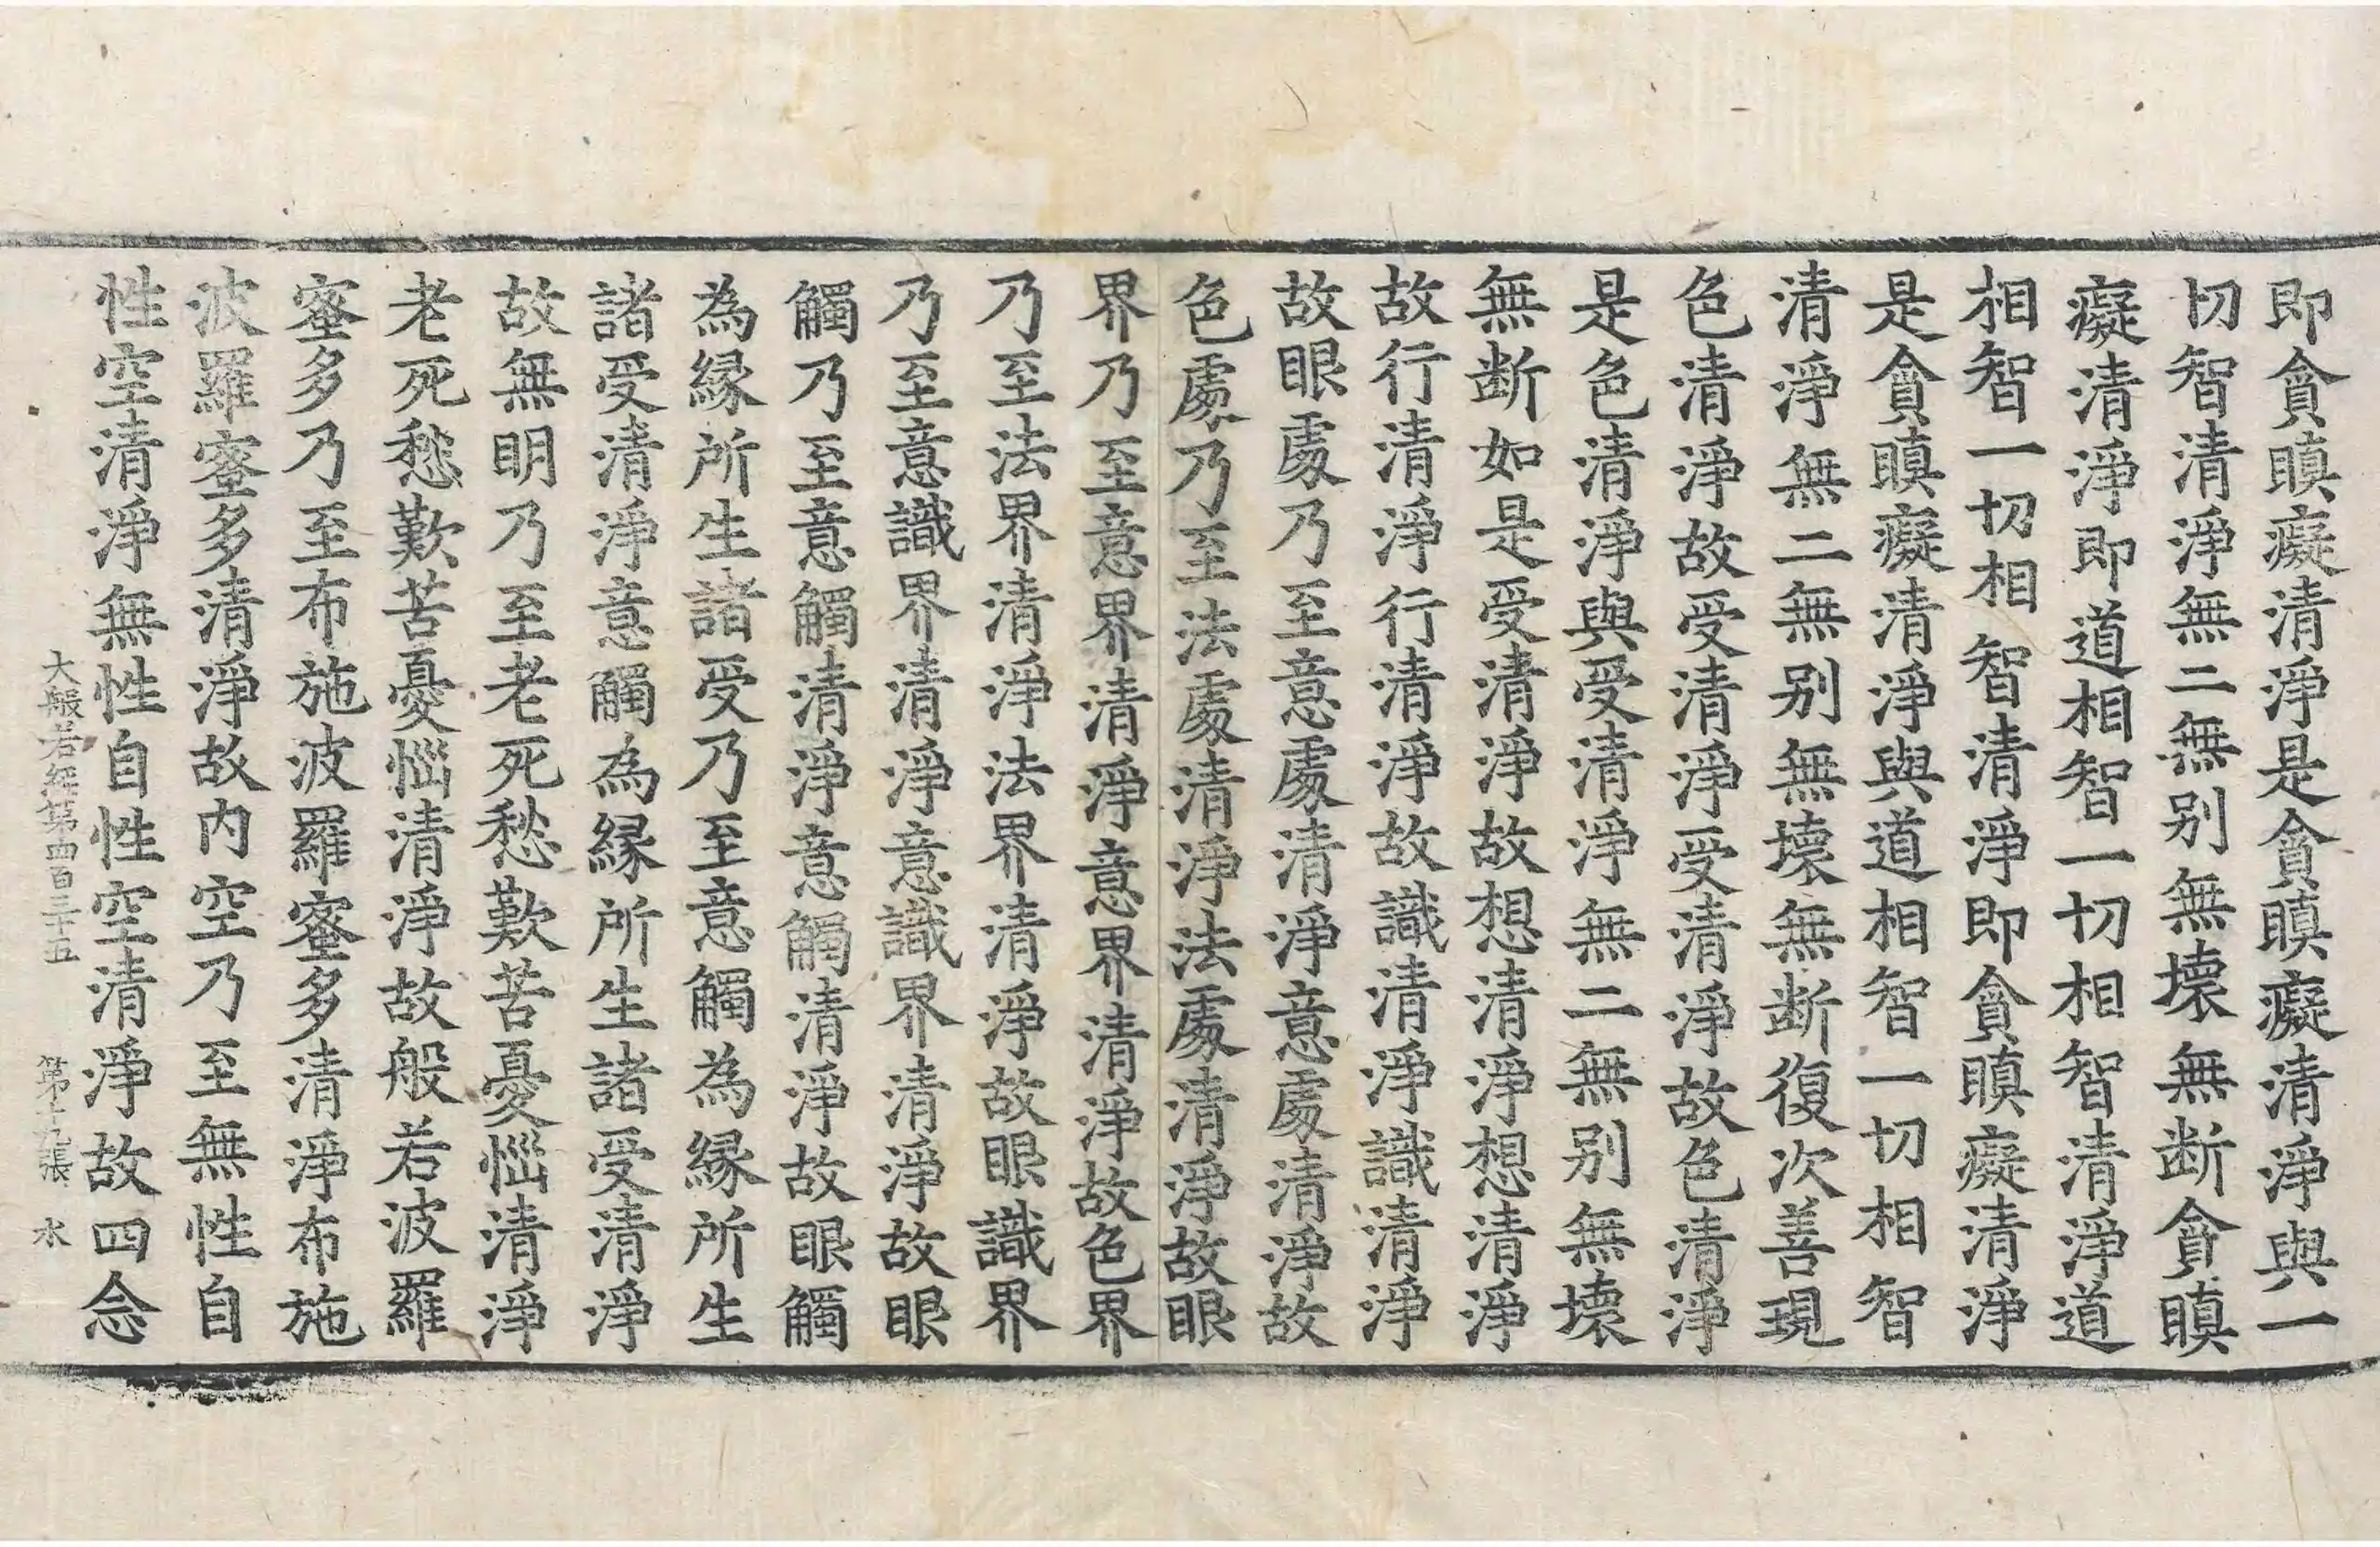 即貪瞋癡清淨是貪瞋癡清淨與一
切智清淨無二無别無壞無断貪瞋
癡清淨即道相智一切相智清淨道
相智一切相智清淨即貪瞋癡清淨
是貪瞋癡清淨與道相智一切相智
清淨無二無别無壞無断復次善現
色清淨故受清淨受清淨故色清淨
是色清淨與受清淨無二無别無壞
無断如是受清淨故想清淨想清淨
故行清淨行清淨故識清淨識清淨
故眼處乃至意處清淨意處清淨故
色處乃至法處清淨法處清淨故眼
界乃至意界清淨意界清淨故色界
乃至法界清淨法界清淨故眼識界
乃至意識界清淨意識界清淨故眼
觸乃至意觸清淨意觸清淨故眼觸
為縁所生諸受乃至意觸為縁所生
諸受清淨意觸為縁所生諸受清淨
故無明乃至老死愁歎苦憂惱清淨
老死愁歎苦憂惱清淨故般若波羅
蜜多乃至布施波羅蜜多清淨布施
波羅蜜多清淨故内空乃至無性自
性空清淨無性自性空清淨故四念
大般若經第四百三十五 第十九張 水